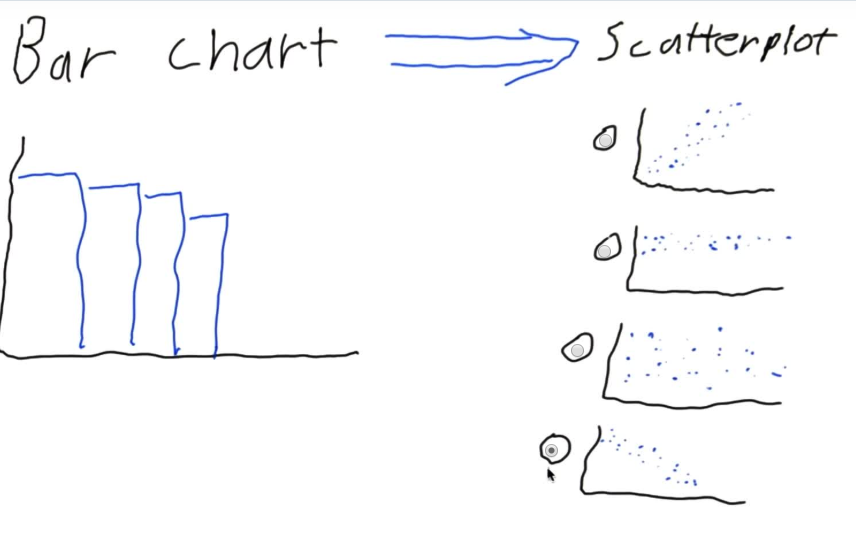 Bar chart
Scatterplot